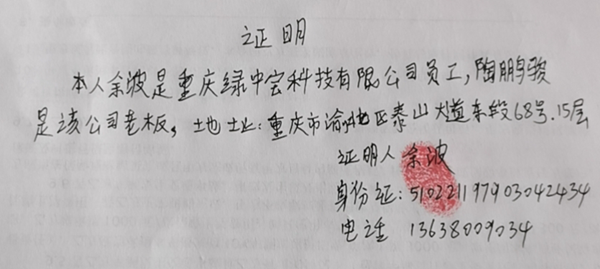 证明
本人余波是重庆绿中宏科技有限公司员工,陶鹏骏
是该公司老板。地址:重庆市渝北区泰山大道东段68号.15层
证明人余波
身份证:510221197903042434
电话 13638009034